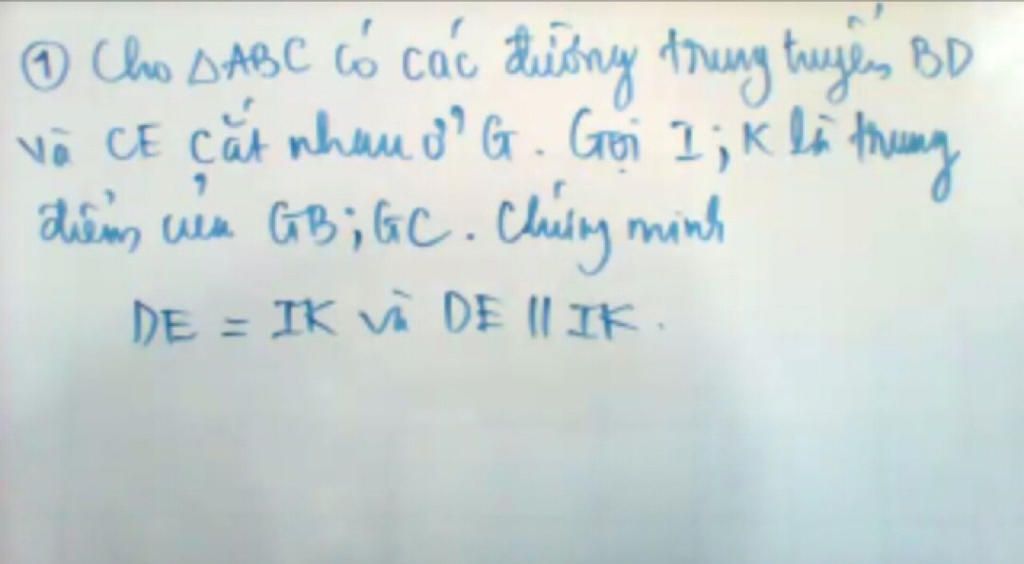 ① Cho △ABC có các đường trung tuyến BD
và CE cắt nhau ở G. Gọi I; K là trung
điểm của GB; GC. Chứng minh
DE = IK và DE // IK.